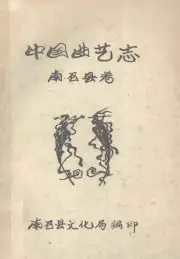 中国曲艺志
南召县卷
南召县文化局编印